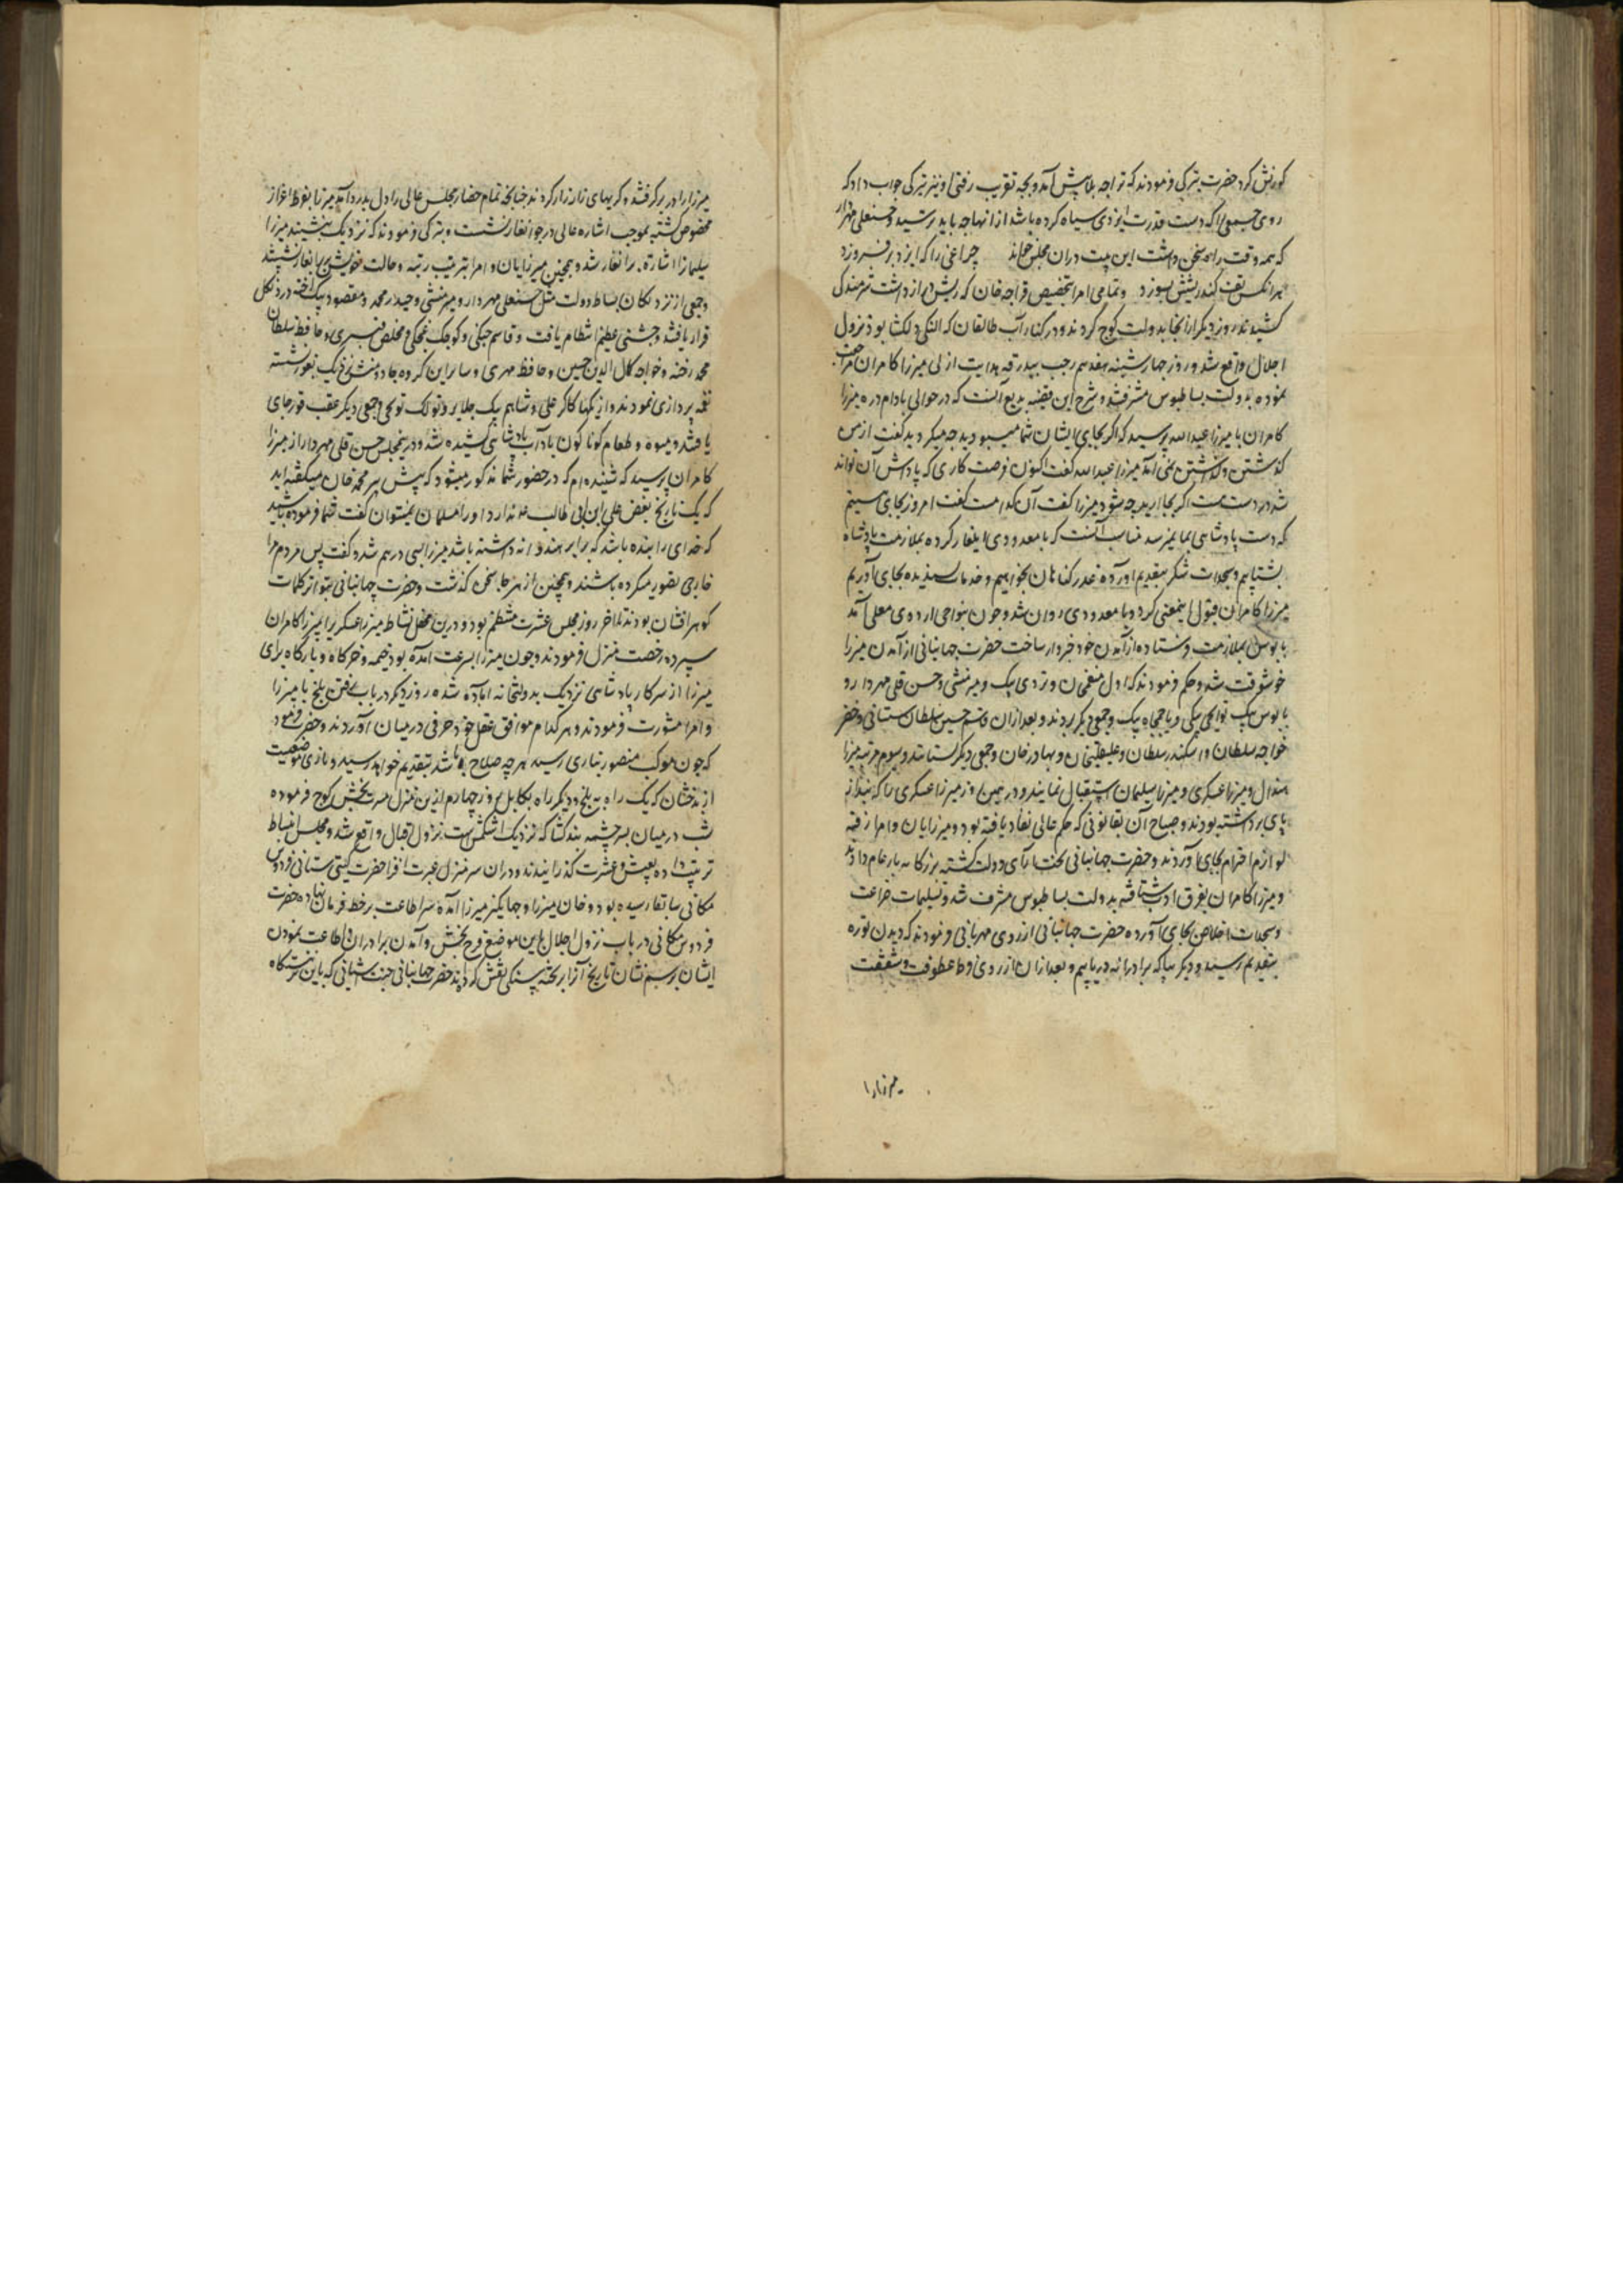 کورنش کرد حضرت بترکی فرمودند که ترا چه بلا پیش آمد و بچه تقریب رفتی او نیز بترکی جواب داد که
روی جمعی را که دست قدرت ایزدی سیاه کرده باشد از آنها چه باید پرسید و حسنقلی مهردار
که همه وقت راه سخن داشت این بیت دران مجلس خواند چراغی را که ایزد بر فروزد
هر آنکس تف کند ریشش بسوزد و تمامی امرا بتخصیص قراجه خان که ریش دراز داشت شرمندگی
کشیدند روز دیگر از انجا بدولت کوچ کردند و در کنار آب طالقان که النگی دلکشا بود نزول
اجلال واقع شد و روز چهارشنبه هفدهم رجب ببدرقه هدایت ازلی میرزا کامران مراجعت
نموده بدولت بساطبوس مشرف شد و شرح این قضیه بدیع آنست که در حوالی بادام دره میرزا
کامران با میرزا عبدالله پرسید که اگر بجای ایشان شما میبودید چه میکردید گفت از من
گذشتن و گذاشتن نمی آمد میرزا عبدالله گفت اکنون فرصت کاری که پاداش آن تواند
شد در دست هست اگر بجا آرید چه شود میرزا گفت آن کدامست گفت امروز بجای رسیدیم
که دست پادشاهی بما نمیرسد مناسب آنست که با معدودی ایلغار کرده بملازمت پادشاه
بشتابیم و سجدات شکر بتقدیم آورده عذر گناهان بخواهیم و خدمات پسندیده بجای آوریم
میرزا کامران قبول اینمعنی کرد و با معدودی روان شد و چون بنواحی اردوی معلی آمد
بابوس را بملازمت فرستاده از آمدن خود خبردار ساخت حضرت جهانبانی از آمدن میرزا
خوشوقت شد و حکم فرمودند که اول منعم خان و تردی بیک و میر منشی و حسن قلی مهردار و
بابوس بیک تواچی بیگی و یا جمعی دیگر بروند و بعد ازان قاسم حسین سلطان شیبانی و خضر
خواجه سلطان و اسکندر سلطان و علیقلیخان و بهادر خان و جمعی دیگر بشتابند و سیوم مرتبه میرزا
هندال و میرزا عسکری و میرزا سلیمان استقبال نمایند و در همین روز میرزا عسکری را که بند از
پای برداشته بودند و صباح آن بقانونی که حکم عالی نفاد یافته بود و میرزایان و امرا رفته
لوازم احترام بجای آوردند و حضرت جهانبانی تخت آرای دولت گشته بزرگانه بار عام دادند
و میرزا کامران بفرق ادب شتافته بدولت بساطبوس مشرف شد و تسلیمات ضراعت
و سجدات اخلاص بجای آورده حضرت جهانبانی از روی مهربانی فرمودند که دیدن توره
بتقدیم رسید و دیگر بیا که برادرانه دریابیم و بعد ازان از روی فرط عطوفت و شفقت
میرزا را
میرزا را در بر گرفتند و گریهای زار زار کردند چنانچه تمام حضار مجلس عالی را دل بدرد آمد میرزا بفرط اعزاز
مخصوص گشته بموجب اشاره عالی در جوانغار نشست و بترکی فرمودند که نزدیک بنشینید میرزا
سلیمان را اشارت برانغار شد و همچنین میرزایان و امرا بترتیب رتبه و حالت خویش برانغار نشستند
و جمعی از نزدیکان بساط دولت مثل حسنقلی مهردار و میر منشی و حیدر محمد و مقصود بیک آخته در دنکل
قرار یافتند و جشنی عظیم انتظام یافت و قاسم چنگی و کوچک غجکی و مخلص قبزی و حافظ سلطان
محمد رخنه و خواجه کمال الدین حسین و حافظ مهری و سایر این گروه جادو منش نزدیک بقور نشسته
نغمه پردازی نمودند و از یکها کاکر علی و شاهم بیک جلایر و تولک قوچی و جمعی دیگر عقب قور جای
یافتند و میوه و طعام گوناگون باداب پادشاهی کشیده شد و درینمجلس حسن قلی مهردار از میرزا
کامران پرسید که شنیده ام که در حضور شما مذکور میشود که پیش پیر محمد خان میگفته اند
که یک نارنج بغض علی ابن ابی طالب ندارد او را مسلمان نمیتوان گفت شما فرموده باشید
که خدای را بنده باشد که برابر هندوانه داشته باشد میرزا بسی درهم شد و گفت پس مردم مرا
خارجی تصور میکرده باشند و همچنین از هر جا سخن گذشت و حضرت جهانبانی بتواتر کلمات
گوهر افشان بودند تا آخر روز مجلس عشرت منتظم بود و درین محفل نشاط میرزا عسکری را بمیرزا کامران
سپرده رخصت منزل فرمودند و چون میرزا بسرعت آمده بود خیمه و خرگاه و بارگاه برای
میرزا از سرکار پادشاهی نزدیک بدولتخانه آماده شده روز دیگر در باب رفتن بلخ با میرزا
و امرا مشورت فرمودند و هر کدام موافق عقل خود حرفی درمیان آوردند و حضرت فرمود
که چون موکب منصور بناری رسید هر چه صلاح باشد بتقدیم خواهد رسید و ناری موضعیست
از بدخشان که یک راه به بلخ و دیگر راه بکابل روز چهارم ازین منزل مسرت بخش کوچ فرموده
شب درمیان بسر چشمه بندکشا که نزدیک اشکمش است نزول اقبال واقع شد و مجلس انبساط
ترتیب داده بعیش و عشرت گذرانیدند و دران سر منزل عبرت افزا حضرت گیتی ستانی فردوس
مکانی سابقا رسیده بود و خان میرزا و جهانگیر میرزا آمده سر اطاعت بر خط فرمان نهاده حضرت
فردوس مکانی در باب نزول اجلال باین موضع فرح بخش و آمدن برادران و اطاعت نمودن
ایشان برسم نشان تاریخ آنرا بر تخته سنگی نقش کرده اند حضرت جهانبانی جنت آشیانی که باین نزهتگاه